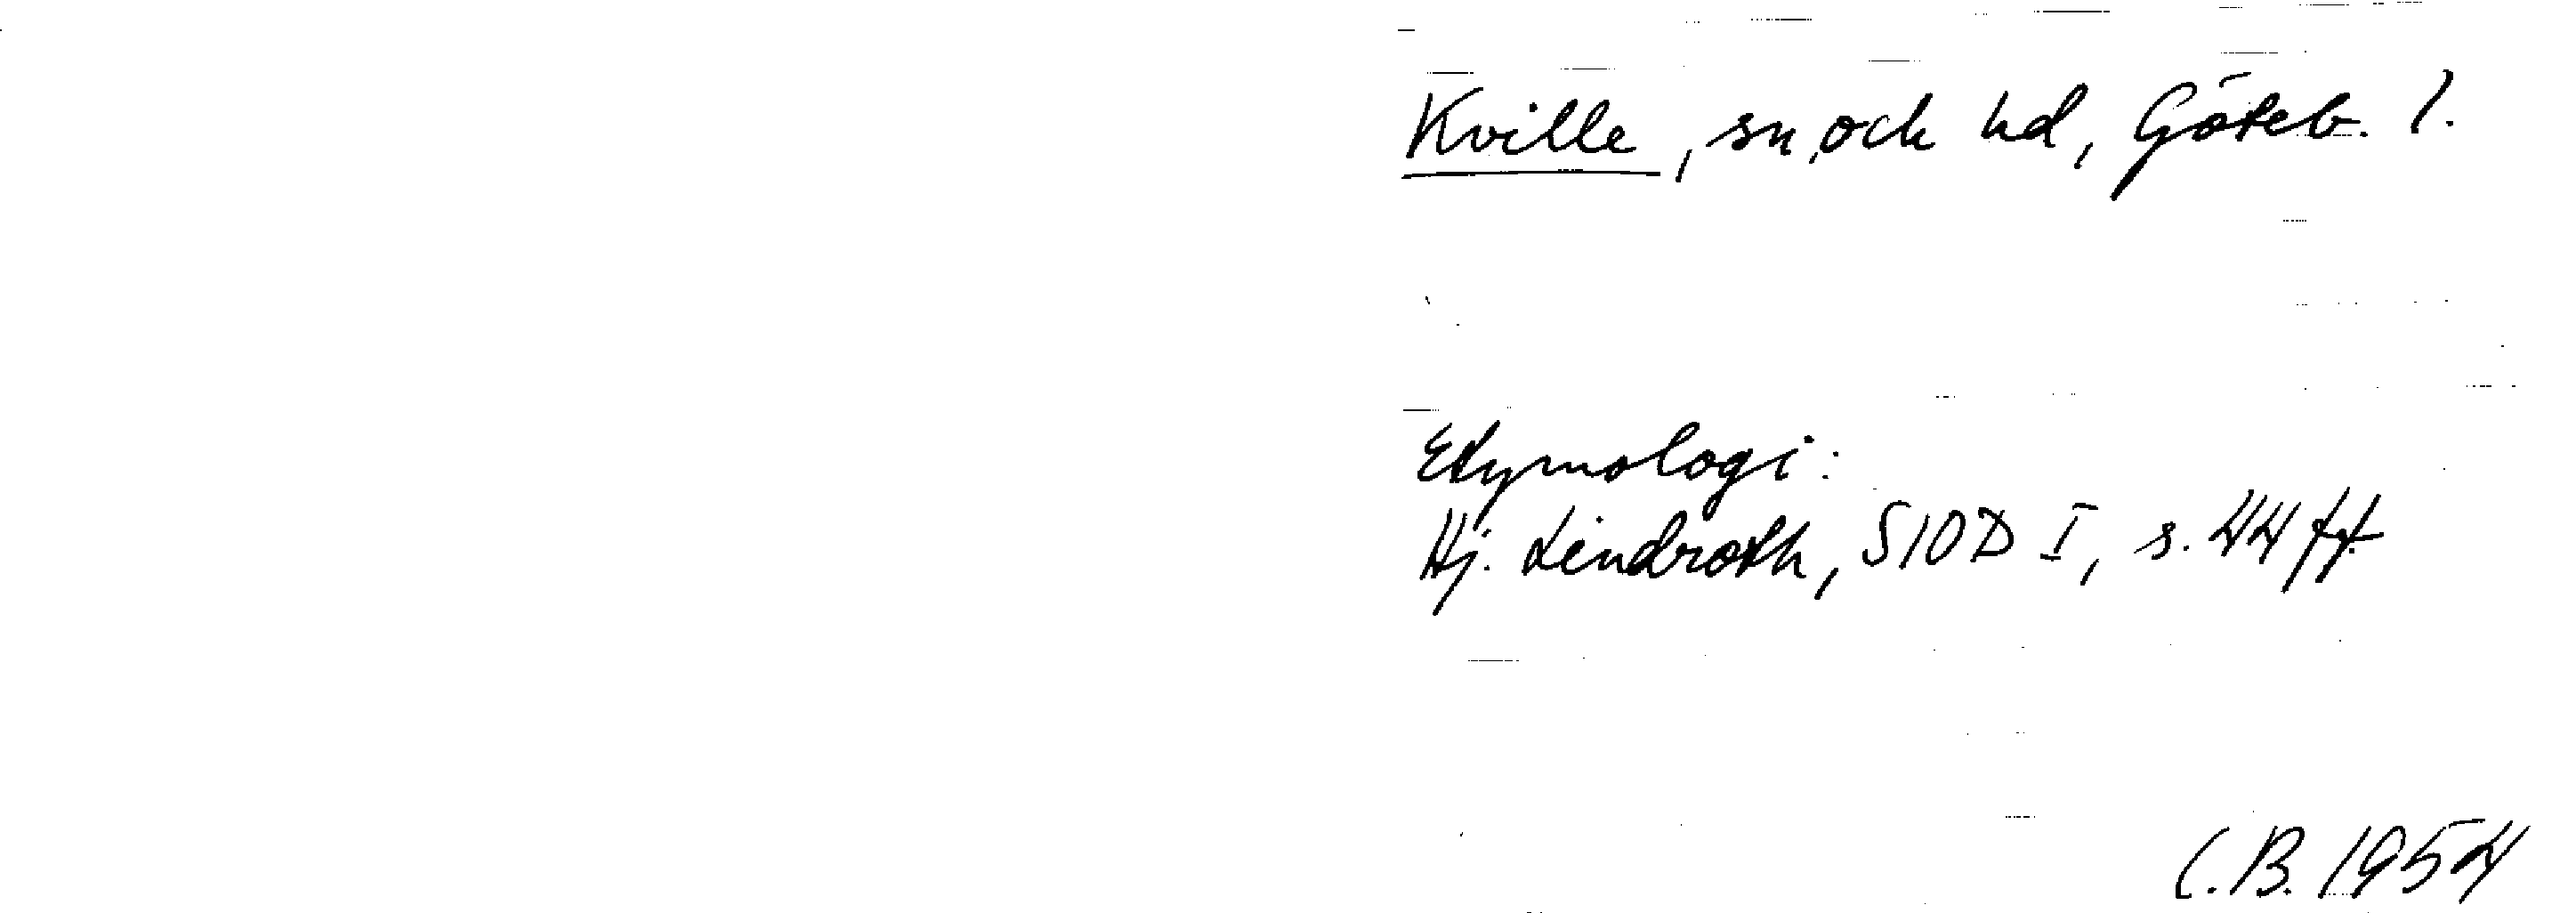 Kville, sn, och hd, Göteb. l.
Etymologi:
Hj. Lindroth, SIOD I, s. 44 ff.
C.B. 1954